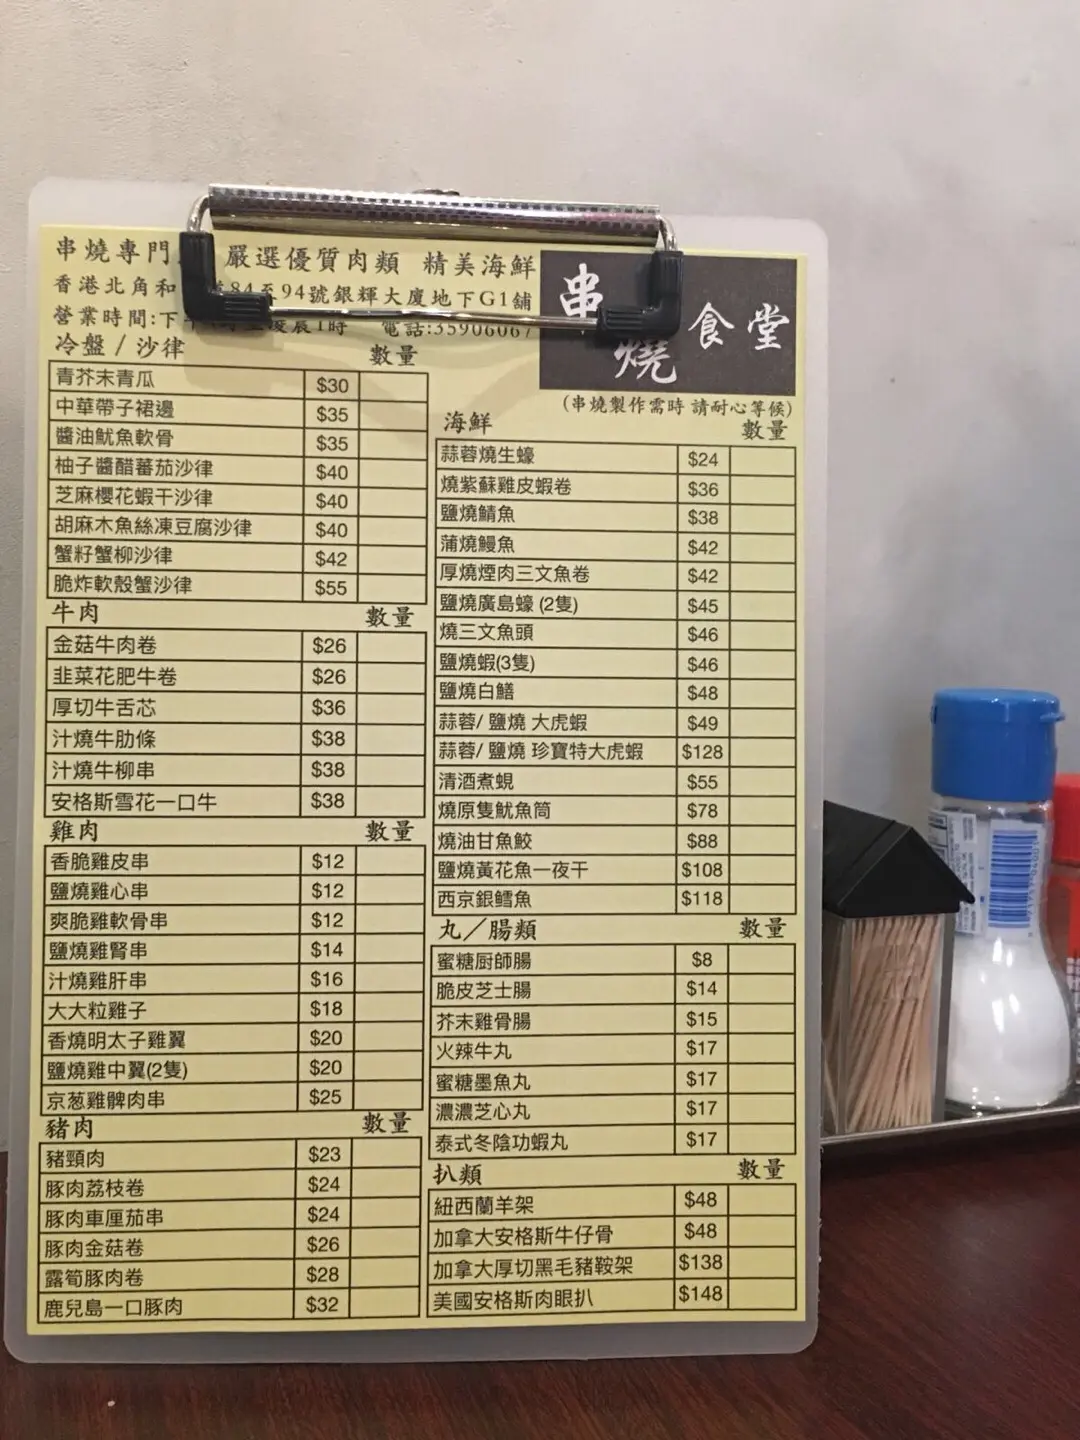 串燒專門 嚴選優質肉類 精美海鮮
香港北角和 84至94號銀輝大廈地下G1舖
營業時間:下 凌晨1時 電話:35906067
串燒食堂
(串燒製作需時 請耐心等候)
冷盤 / 沙律 數量
青芥末青瓜 $30
中華帶子裙邊 $35
醬油魷魚軟骨 $35
柚子醬醋蕃茄沙律 $40
芝麻櫻花蝦干沙律 $40
胡麻木魚絲凍豆腐沙律 $40
蟹籽蟹柳沙律 $42
脆炸軟殼蟹沙律 $55
牛肉 數量
金菇牛肉卷 $26
韭菜花肥牛卷 $26
厚切牛舌芯 $36
汁燒牛肋條 $38
汁燒牛柳串 $38
安格斯雪花一口牛 $38
雞肉 數量
香脆雞皮串 $12
鹽燒雞心串 $12
爽脆雞軟骨串 $12
鹽燒雞腎串 $14
汁燒雞肝串 $16
大大粒雞子 $18
香燒明太子雞翼 $20
鹽燒雞中翼(2隻) $20
京葱雞髀肉串 $25
豬肉 數量
豬頸肉 $23
豚肉荔枝卷 $24
豚肉車厘茄串 $24
豚肉金菇卷 $26
露筍豚肉卷 $28
鹿兒島一口豚肉 $32
海鮮 數量
蒜蓉燒生蠔 $24
燒紫蘇雞皮蝦卷 $36
鹽燒鯖魚 $38
蒲燒鰻魚 $42
厚燒煙肉三文魚卷 $42
鹽燒廣島蠔 (2隻) $45
燒三文魚頭 $46
鹽燒蝦(3隻) $46
鹽燒白鱔 $48
蒜蓉/ 鹽燒 大虎蝦 $49
蒜蓉/ 鹽燒 珍寶特大虎蝦 $128
清酒煮蜆 $55
燒原隻魷魚筒 $78
燒油甘魚鮫 $88
鹽燒黃花魚一夜干 $108
西京銀鱈魚 $118
丸／腸類 數量
蜜糖廚師腸 $8
脆皮芝士腸 $14
芥末雞骨腸 $15
火辣牛丸 $17
蜜糖墨魚丸 $17
濃濃芝心丸 $17
泰式冬陰功蝦丸 $17
扒類 數量
紐西蘭羊架 $48
加拿大安格斯牛仔骨 $48
加拿大厚切黑毛豬鞍架 $138
美國安格斯肉眼扒 $148